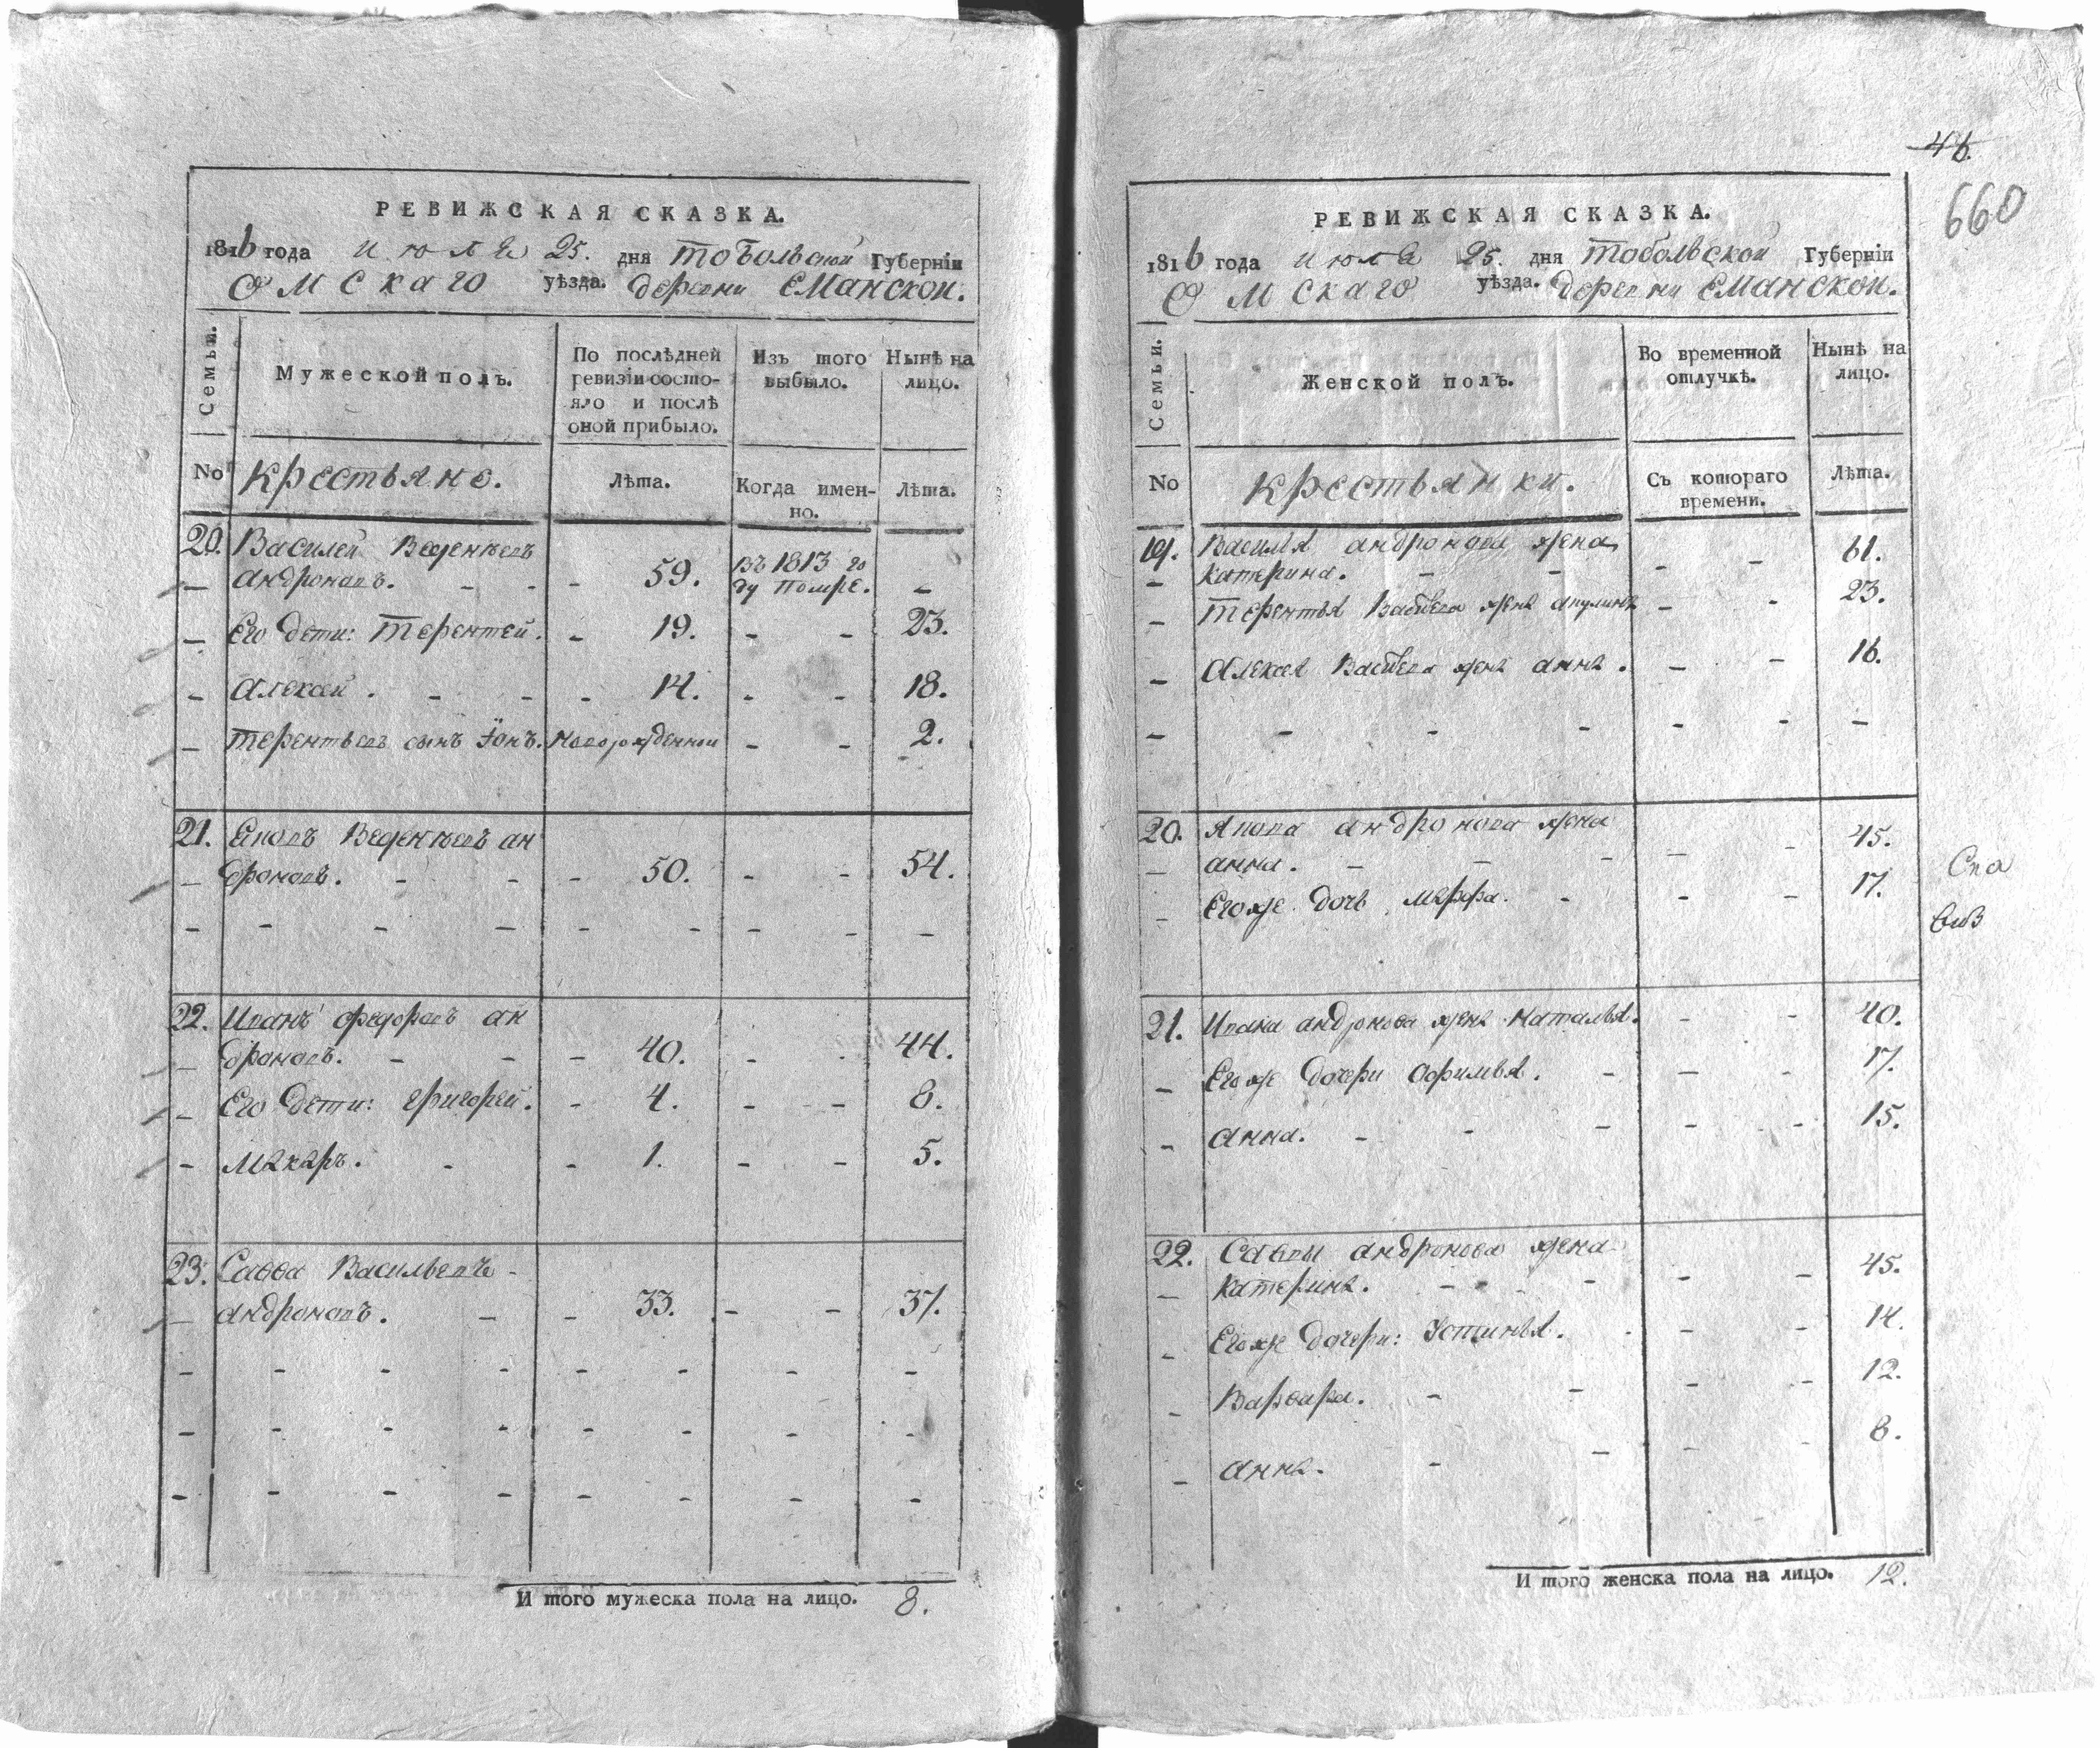 РЕВИЖСКАЯ СКАЗКА.
1816 года июля 25. дня тобольской Губернїи
Омскаго уѣзда. деревни Еманской.
Семьи.
Мужеской полъ.
По послѣдней ревизїи состояло и послѣ оной прибыло.
Изъ того выбыло.
Нынѣ на лицо.
No
крестьяне.
Лѣта.
Когда именно.
Лѣта.
20. Василей Веденѣевъ
андроновъ. - - - 59. въ 1813 году помре. -
Его дети: Терентей. - 19. - - 23.
Алексей. - - - 14. - - 18.
Терентьевъ сынъ Iонъ. новорожденной - - 2.
21. Яковъ Веденѣевъ ан
дроновъ. - - - 50. - - 54.
22. Иванъ федоровъ ан
дроновъ. - - - 40. - - 44.
Его дети: григорей. - 4. - - 8.
Макаръ. - - 1. - - 5.
23. Савва Васильевъ
андроновъ. - - 33. - - 37.
И того мужеска пола на лицо. 8.
46.
660
РЕВИЖСКАЯ СКАЗКА.
1816 года июля 25. дня тобольской Губернїи
Омскаго уѣзда. деревни Еманской.
Семьи.
Женской полъ.
Во временной отлучкѣ.
Нынѣ на лицо.
No
крестьянки.
Съ котораго времени.
Лѣта.
19. Василья андронова жена
катерина. - - - - 61.
Терентья Васильева жена акулина - - 23.
Алексея Васильева жена анна. - - 16.
20. Якова андронова жена
анна. - - - - - 45.
Егоже дочь марфа. - - - 17.
21. Ивана андронова жена Наталья. - - 40.
Егоже дочери Офимья. - - - 17.
анна. - - - - - 15.
22. Саввы андронова жена
катерина. - - - - 45.
Егоже дочери: Устинья. - - - 14.
Варвара. - - - - 12.
анна. - - - - 8.
И того женска пола на лицо. 12.